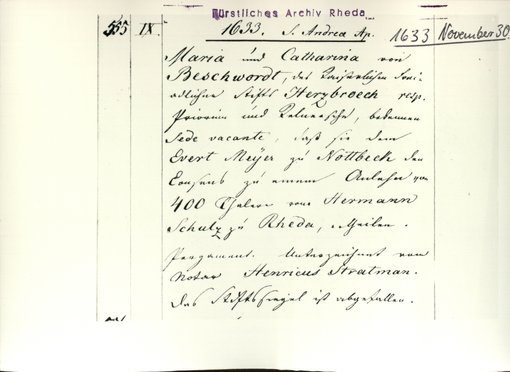 Fürstliches Archiv Rheda
555 IX. 1633. S. Andreä Ap. 1633 November 30
Maria und Catharina von
Beschwordt, des Kaiserlichen frei-
adlichen Stifts Herzbroech resp.
Priorin und Kelnersche, bekennen
Sede vacante, daß sie dem
Evert Meÿer zu Nottbeck den
Consens zu einem Anlehn von
400 Thalern von Hermann
Schulz zu Rheda, ertheilen.
Pergament. Unterzeichnet vom
Notar Henricus Stratman.
Das Stiftssiegel ist abgefallen.